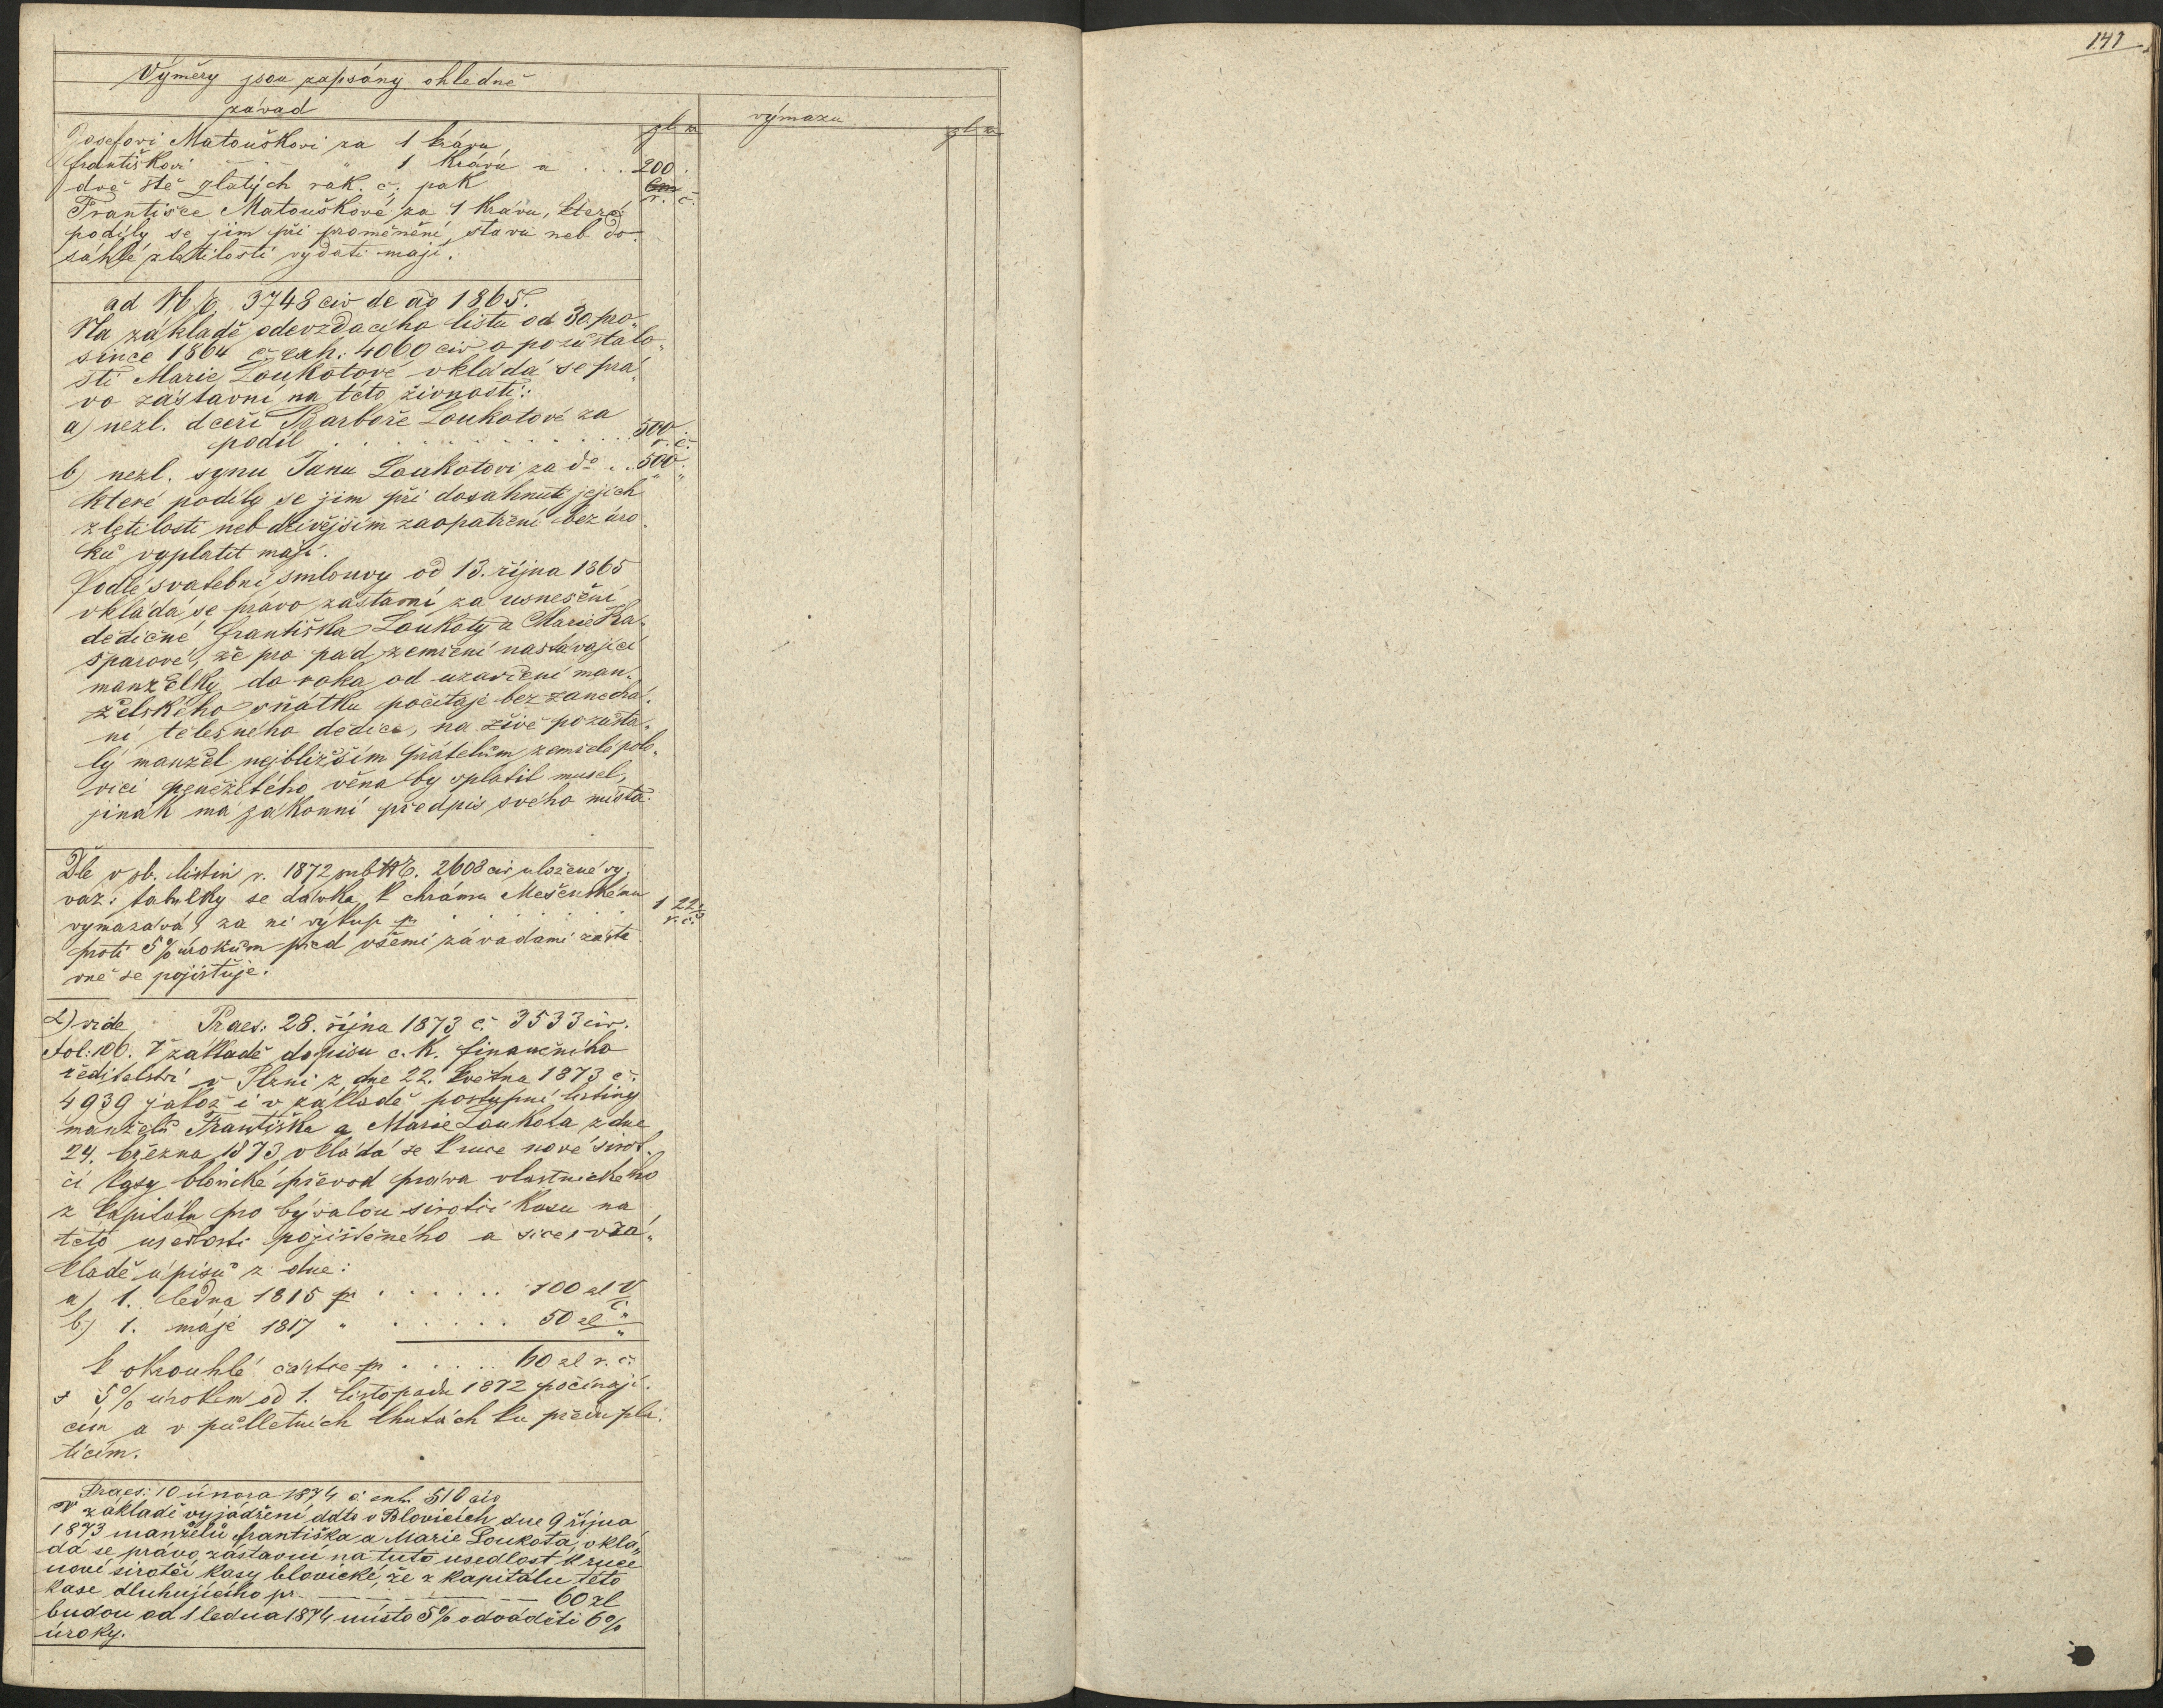 141
Výměry jsou zapsány ohledně
závad
zl kr
výmazu
zl kr
Josefovi Matouškovi za 1 krávu
františkovi " 1 krávu a . . . 200.
dvě stě zlatých rak. č. pak r. č.
Františce Matouškové za 1 krávu, které
podíly se jim při proměnění stavu neb do-
sáhlé zletilosti vydati mají.
ad N E. 3748 civ de ao 1865.
Na základě odevzdacího listu od 30. pro-
since 1864 č. exh: 4060 civ o pozůstalo-
sti Marie Loukotové vkládá se prá-
vo zástavní na této živnosti:
a) nezl. dceři Barboře Loukotové za
podíl . . . . . . . . . . 500 r. č.
b) nezl. synu Janu Loukotovi za do . . 500 " "
které podíly se jim při dosahnutí jejich
zletilosti neb dřívějším zaopatření bez úro-
ků vyplatit mají.
Podlé svatební smlouvy od 13. října 1865
vkládá se právo zástavní za usnešení
dědičné františka Loukoty a Marie Ka-
šparové, že pro pad zemření nastávající
manželky do roka od uzavření man-
želského sňátku počítaje bez zanechá-
ní tělesného dědice, na živě pozůsta-
lý manžel nejbližším přátelům zemřelé polo-
vici peněžitého věna by vplatit musel,
jinák má zákonní předpis svého místa.
Dle v sb. listin r. 1872 sub N E. 2608 civ uložené vy-
vaz: tabulky se dávka k chrámu Mešenskému
vymazává, za ni výkup pr . . . . . 1 22 r. č.
proti 5% úrokům před všemi závadami zásta-
vně se pojišťuje.
2) vide Praes: 28. října 1873 č. 3533 civ.
fol: 106. V základě dopisu c. k. finančního
ředitelství v Plzni z dne 22. května 1873 č.
4939 jakož i v základě postupní listiny
manželů Františka a Marie Loukota z dne
24. března 1873 vkládá se k ruce nové sirot-
čí kasy blovické převod práva vlastnického
z kapitálu pro bývalou sirotčí kasu na
této usedlosti pojištěného a sice v zá-
kladě úpisů z dne:
a) 1. ledna 1815 pr . . . . . . 100 zl V č.
b) 1. máje 1817 " . . . . . . 50 zl " "
k okrouhlé částce pr . . . . . 60 zl r. č.
s 5% úrokem od 1. listopadu 1872 počínají-
cím a v půlletních lhutách ku předu pla-
tícím.
Praes: 10 února 1874 č. exh. 510 civ
V základě vyjádření ddto v Blovicích dne 9 října
1873 manželů františka a Marie Loukota, vklá-
dá se právo zástavní na tuto usedlost k ruce
nové sirotčí kasy blovické, že z kapitálu této
kase dluhujícího pr. — — — — 60 zl
budou od 1 ledna 1874 místo 5% odváděti 6%
úroky.